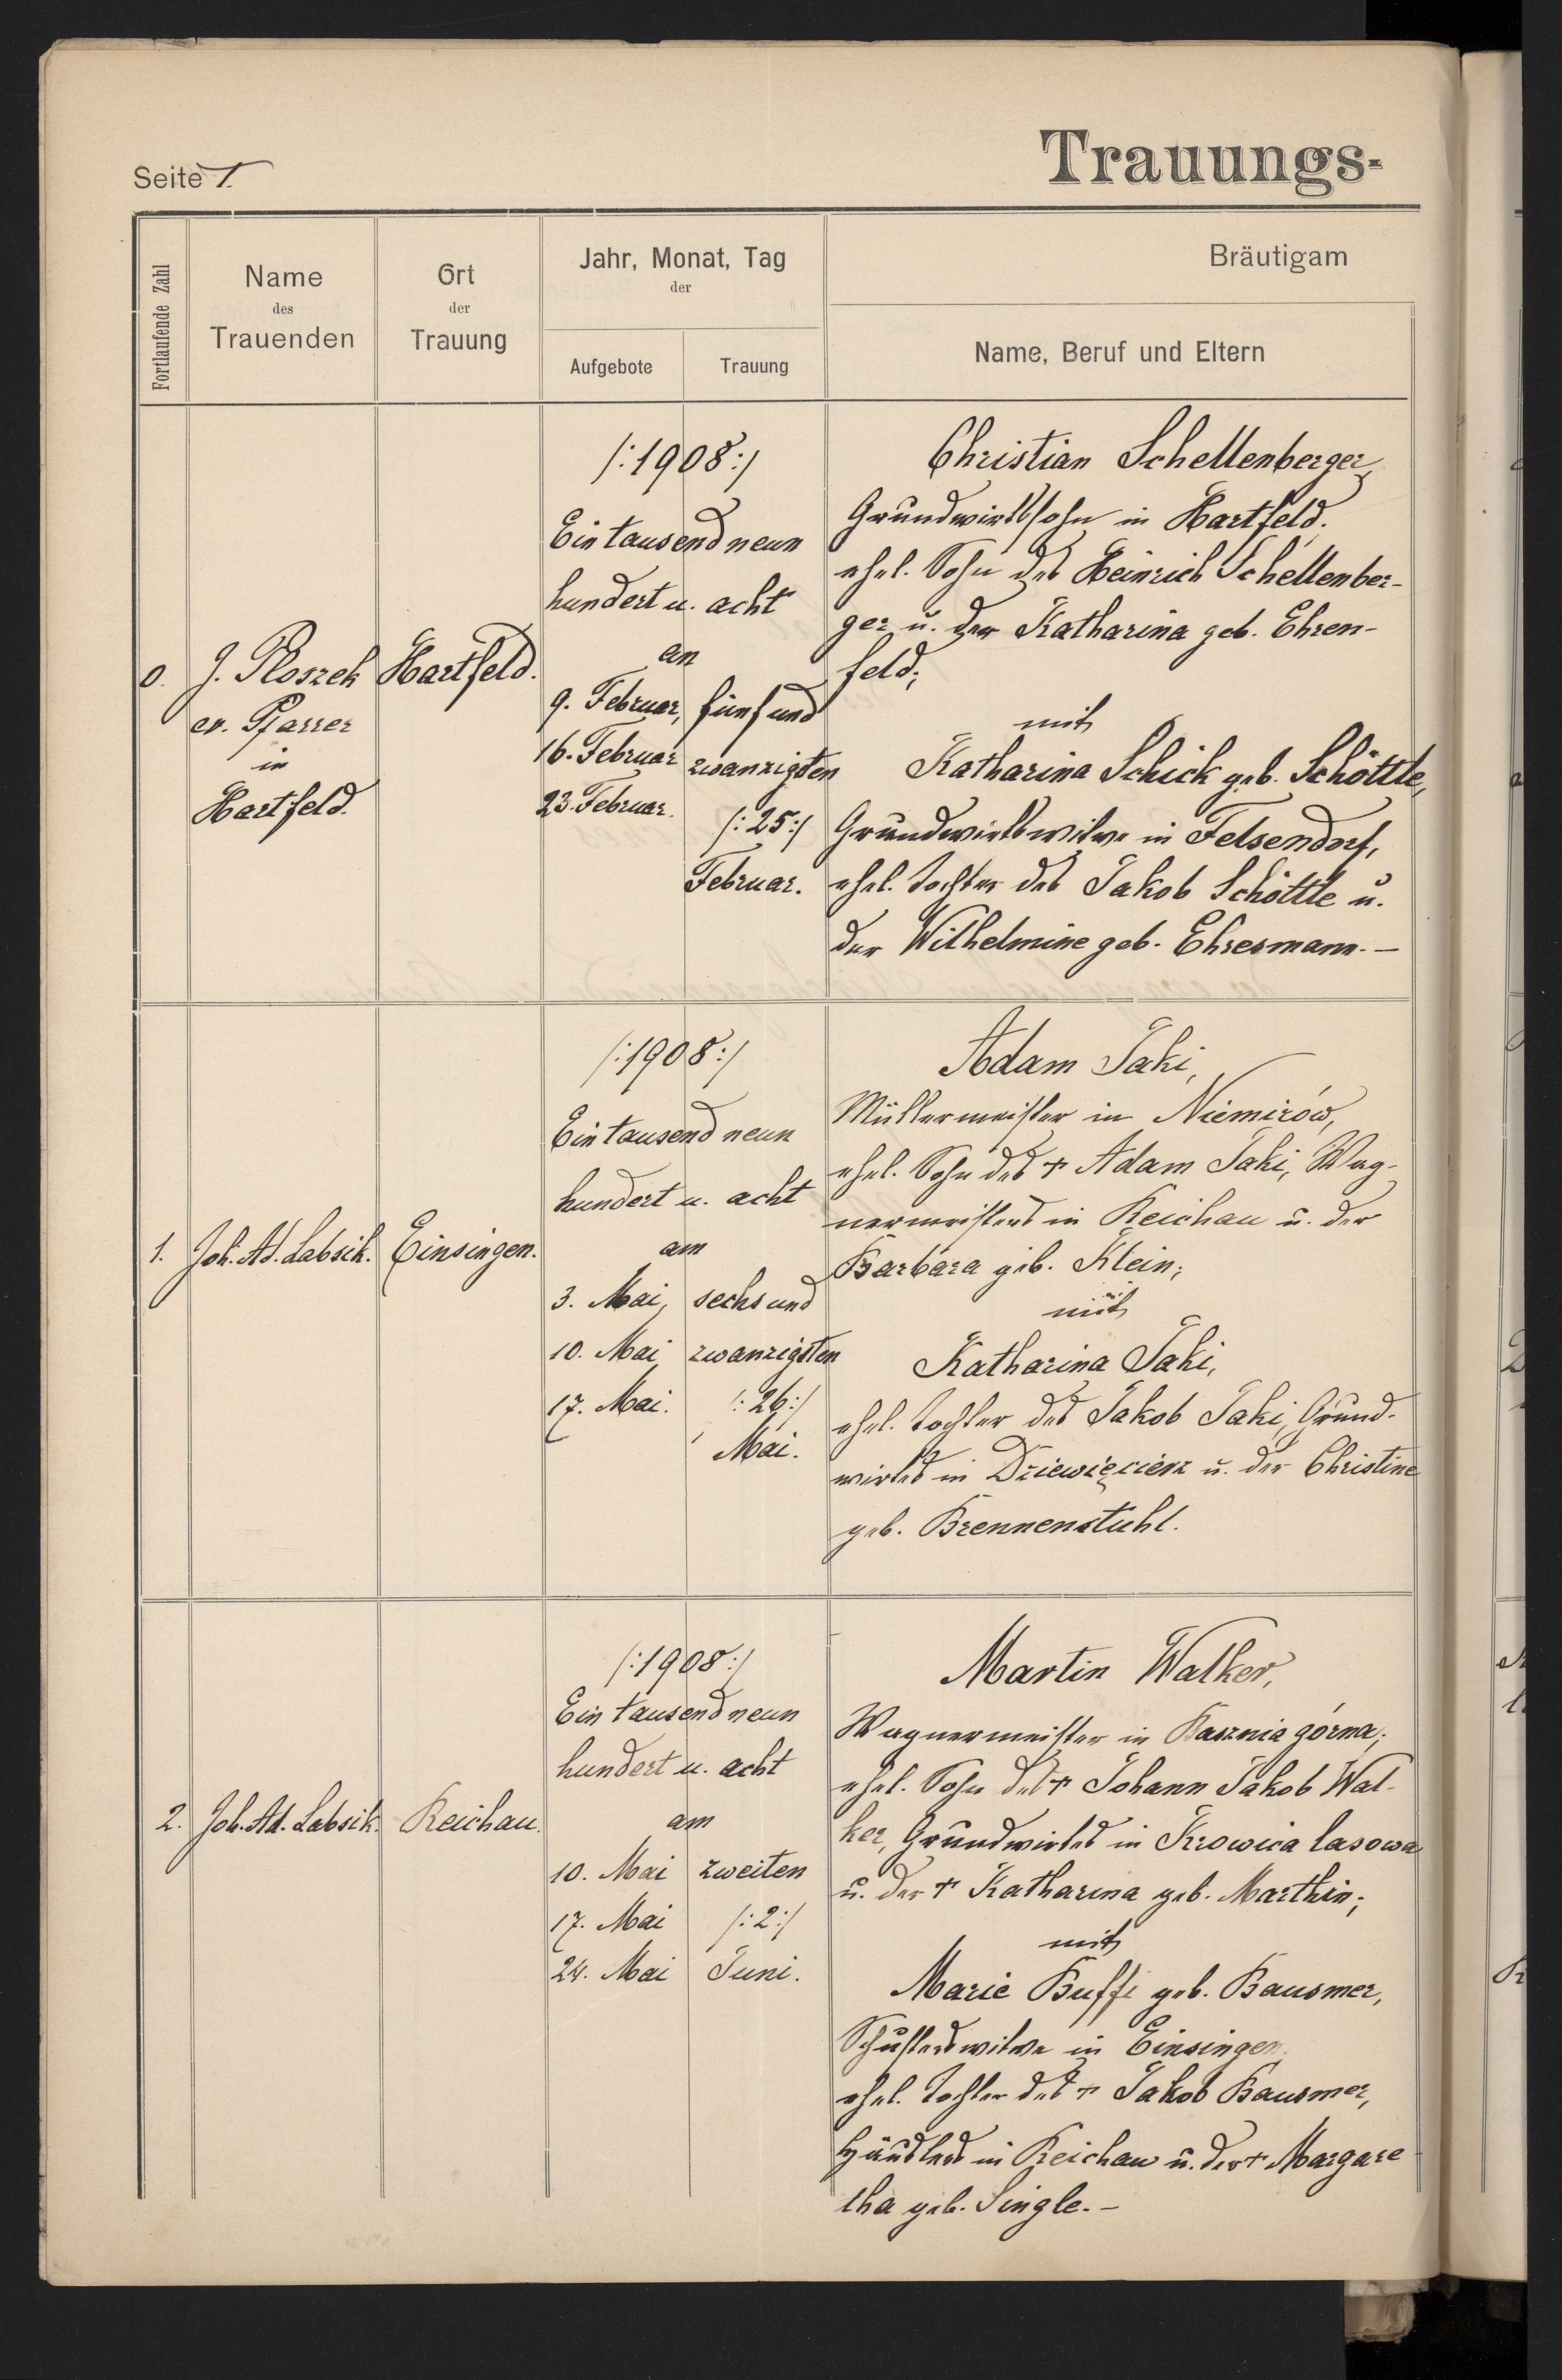 Seite 1.
Trauungs-
Fortlaufende Zahl
Name
des
Trauenden
Ort
der
Trauung
Jahr, Monat, Tag
der
Aufgebote
Trauung
Bräutigam
Name, Beruf und Eltern
0.
J. Ploszek
ev. Pfarrer
in
Hartfeld.
Hartfeld.
/:1908:/
Ein tausend neun
hundert u. acht
an
9. Februar,
16. Februar
23. Februar.
fünf und
zwanzigten
/:25:/
Februar.
Christian Schellenberger,
Grundwirtssohn in Hartfeld.
ehel. Sohn des Heinrich Schellenber-
ger u. der Katharina geb. Ehren-
feld;
mit
Katharina Schick geb. Schöttle,
Grundwirtswitwe in Felsendorf,
ehel. Tochter des Jakob Schöttle u.
der Wilhelmine geb. Ehresmann. —
1.
Joh. Ad. Labsik.
Einsingen.
/:1908:/
Ein tausend neun
hundert u. acht
am
3. Mai,
10. Mai
17. Mai.
sechs und
zwanzigsten
/:26:/
Mai.
Adam Jaki,
Müllermeister in Niemirów,
ehel. Sohn des † Adam Jaki, Wag-
nermeisters in Reichau u. der
Barbara geb. Klein;
mit
Katharina Jaki,
ehel. Tochter des Jakob Jaki, Grund-
wirtes in Dziewięcierz u. der Christine
geb. Brennenstuhl.
2.
Joh. Ad. Labsik.
Reichau.
/:1908:/
Ein tausend neun
hundert u. acht
am
10. Mai
17. Mai
24. Mai
zweiten
/:2:/
Juni.
Martin Walker,
Wagnermeister in Basznia górna;
ehel. Sohn des † Johann Jakob Wal-
ker, Grundwirtes in Krowica lasowa
u. der † Katharina geb. Marthin;
mit
Marie Buffi geb. Bausmer,
Schusterswitwe in Einsingen
ehel. Tochter des † Jakob Bausmer,
Häuslers in Reichau u. der † Margare
tha geb. Single. —